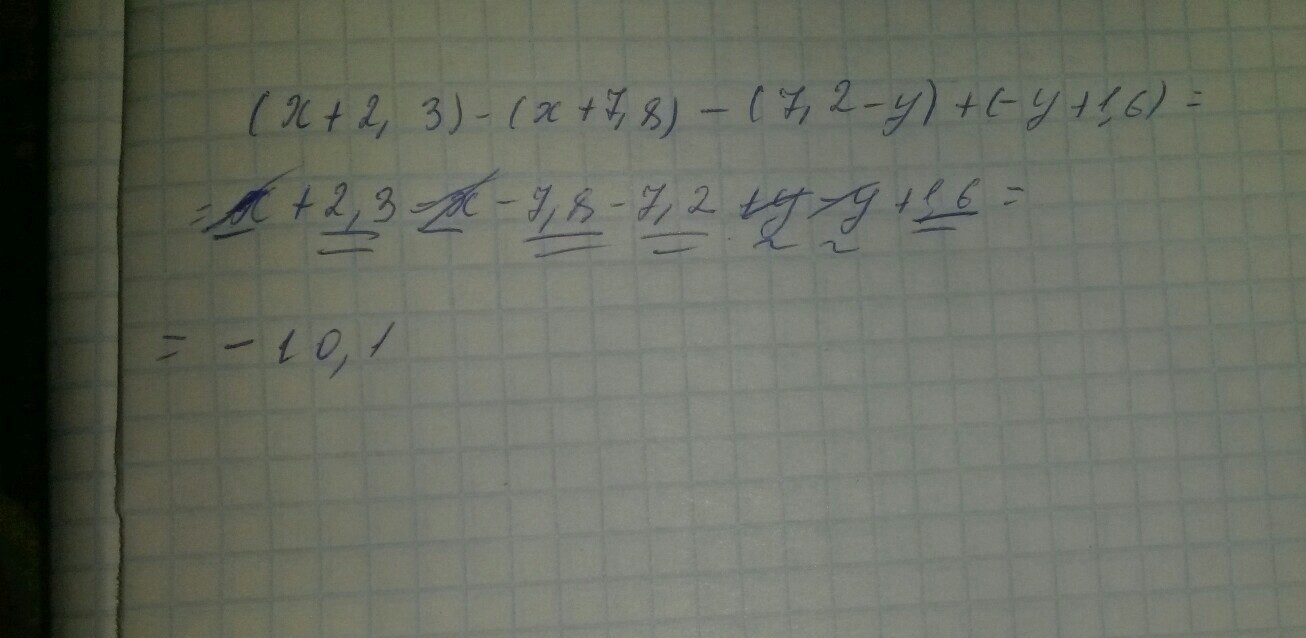 (x+2,3)-(x+7,8)-(7,2-y)+(-y+1,6)=
=x+2,3-x-7,8-7,2+y-y+1,6=
=-10,1